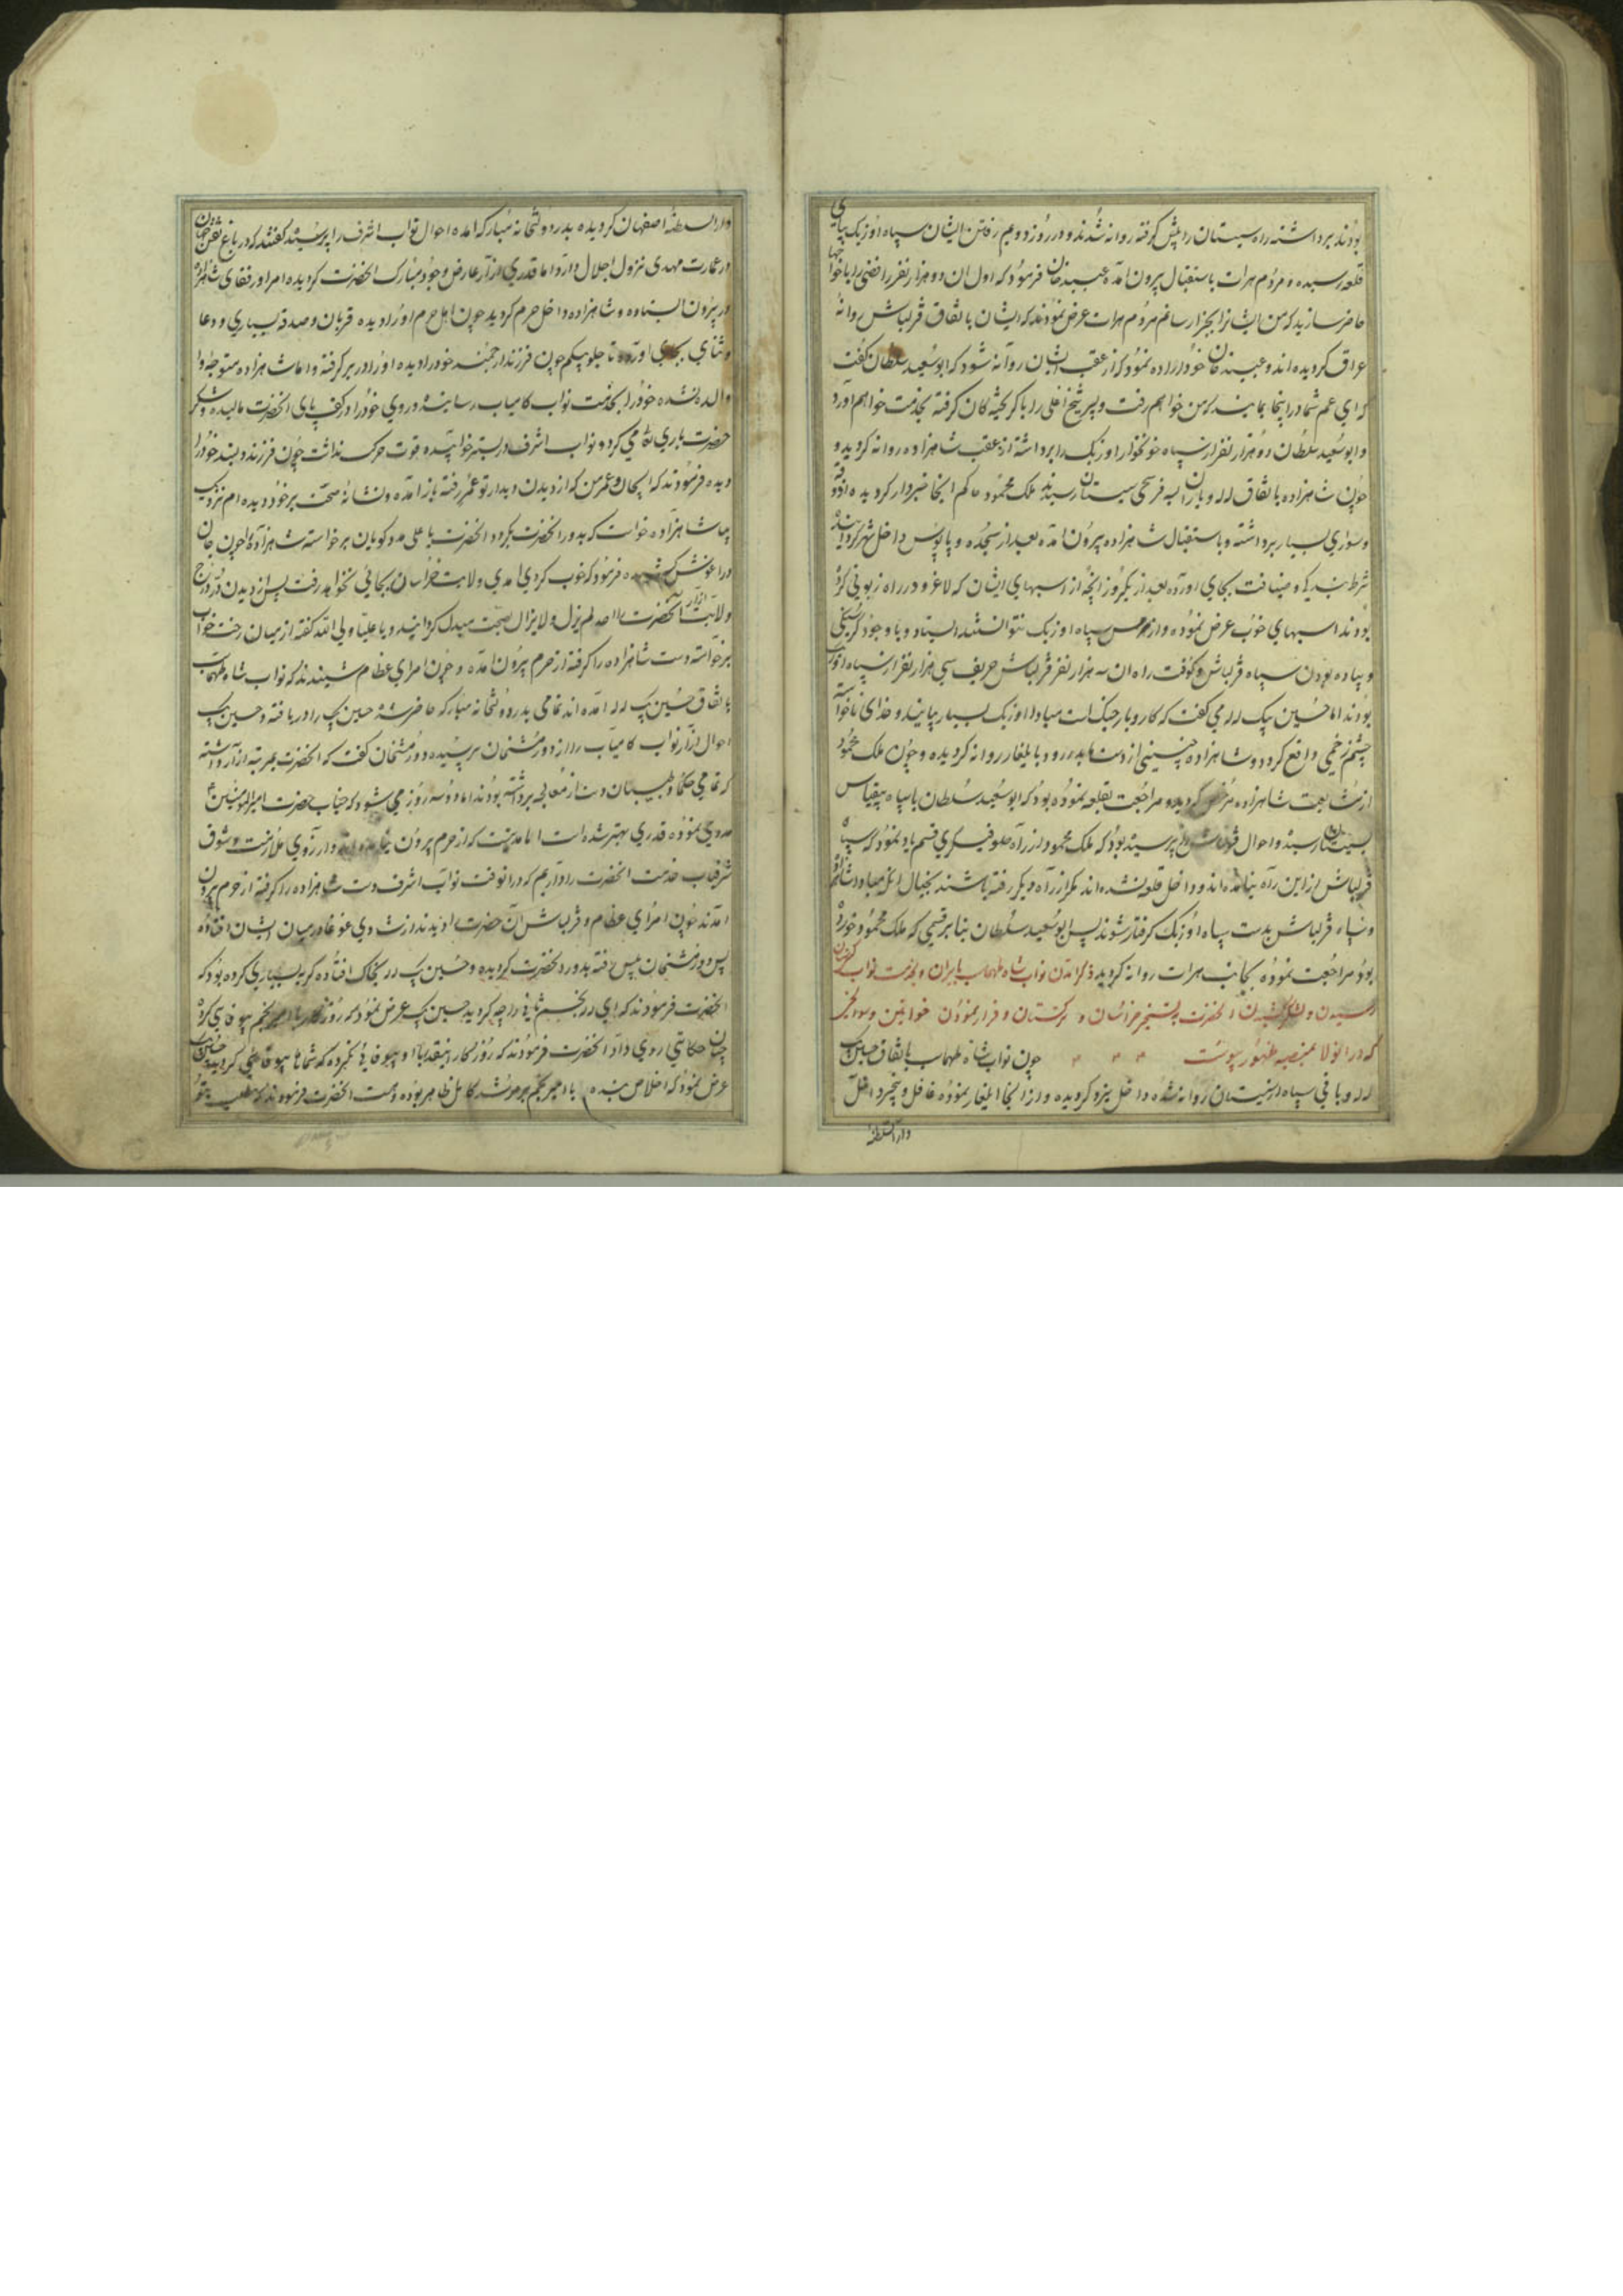 بودند برداشته راه سیستان را پیش گرفته روانه شدند و در روز دوویم رفتن ایشان سپاه اوزبک بپای
قلعه رسیده و مردم هرات باستقبال بیرون آمده عبید خان فرمود که اول آن دو هزار نفر رافضی را با خواجها
حاضر سازید که من ایشانرا بجزا رسانم مردم هرات عرض نمودند که ایشان باتفاق قزلباش روانه
عراق گردیده اند و عبید خان خود اراده نمود که از عقب ایشان روانه شود که ابوسعید سلطان گفت
که ای عم شما در اینجا بمانید که من خواهم رفت و پسر شیخ اغلی را با گریخته گان گرفته بخدمت خواهم آورد
و ابوسعید سلطان دو هزار نفر از سپاه خونخوار اوزبک را برداشته از عقب شاهزاده روانه گردید و
چون شاهزاده باتفاق لله و یاران به فرسخی سیستان رسیدند ملک محمود حاکم آنجا خبردار گردیده آذوقه
و سوری بسیار برداشته و باستقبال شاهزاده بیرون آمده بعد از سجده و پابوس داخل شهر گردانیده
شرط بندگی و ضیافت بجای آورده بعد از یکروز آنچه از اسبهای ایشان که لاغر و در راه زبونی کرده
بودند اسبهای خوب عرض نموده و از ترس سپاه اوزبک نتوانستند ایستاد و با وجود گرسنگی
و پیاده بودن سپاه قزلباش و کوفت راه آن سه هزار نفر قزلباش حریف سی هزار نفر از سپاه اوزبک
بودند اما حسین بیک لله می گفت که کار و بار جنگ است مبادا اوزبک بسیار بیایند و خدای ناخواسته
چشم زخمی واقع گردد و شاهزاده چنینی از دست ما بدر رود و بایلغار روانه گردیده و چون ملک محمود
از مشایعت شاهزاده مرخص گردیده مراجعت بقلعه نموده بود که ابوسعید سلطان با سپاه بیقیاس
بسیستان رسید و احوال قزلباش را پرسیده بود که ملک محمود از راه صوفیگری قسم یاد نمود که سپاه
قزلباش از این راه نیامده اند و داخل قلعه نشده اند مگر از راه دیگر رفته باشند بخیال آنکه مبادا شاهزاده
و سپاه قزلباش بدست سپاه اوزبک گرفتار شوند پس ابوسعید سلطان بنابر قسمی که ملک محمود خورده
بود مراجعت نموده بجانب هرات روانه گردید ذکر آمدن نواب شاه طهماسب بایران و بخدمت نواب گیتی ستان
رسیدن و لشکر کشیدن آنحضرت بتسخیر خراسان و ترکستان و فرار نمودن خوانین و سوانحی
که در آنولا بمنصه ظهور پیوست چون نواب شاه طهماسب باتفاق حسین بیک
لله و باقی سپاه از سیستان روانه شده داخل یزد گردیده و از آنجا ایلغار نموده غافل و بیخبر داخل
دار السلطنه
دار السلطنه اصفهان گردیده بدر دولتخانه مبارکه آمده احوال نواب اشرف را پرسید گفتند که در باغ نقش جهان
در عمارت مهدی نزول اجلال دارد اما قدری آزار عارض وجود مبارک آنحضرت گردیده امرا و رفقای شاهزاده
در بیرون ایستاده و شاهزاده داخل حرم گردید چون اهل حرم او را دیده قربان و صدقه بسیاری و دعا
و ثنای بجای آورده تاجلو بیگم چون فرزند ارجمند خود را دیده او را در بر گرفته و اما شاهزاده متوجه
والده نشده خود را بخدمت نواب کامیاب رسانیده و روی خود را در کف پای آنحضرت مالیده و شکر
حضرت باری تعالی می کرد و نواب اشرف در بستر خوابیده قوت حرکت نداشت چون فرزند دلبند خود را
دیده فرمودند که ای جان و عمر من که از دیدن دیدار تو عمر رفته باز آمده و نشانه صحت بر خود دیده ام نزدیک
بیا شاهزاده خواست که بدور آنحضرت بگردد آنحضرت یا علی مدد گویان برخواسته شاهزاده را چون جان
در آغوش کشیده فرمود که خوب کردی آمدی ولایت خراسان بجائی نخواهد رفت پس از دیدن در درج
ولایت آزار آنحضرت را احد لم یزل و لایزال بصحت مبدل گردانید و یا علیا ولی الله گفته از میان رخت خواب
برخواسته دست شاهزاده را گرفته از حرم بیرون آمده و چون امرای عظام شنیدند که نواب شاه طهماسب
باتفاق حسین بیک لله آمده اند تمامی بدر دولتخانه مبارکه حاضر شده حسین بیک را دریافته و حسین بیک
احوال آزار نواب کامیاب را از دورمشخان پرسیده دورمشخان گفت که آنحضرت بمرتبه آزار داشته
که تمامی حکما و طبیبان دست از معالجه برداشته بودند اما دو سه روز می شود که جناب حضرت امیرالمومنین
مددی نموده قدری بهتر شده است اما مدتیست که از حرم بیرون نیامده اند و آرزوی ملازمت و شوق
شرفیاب خدمت آنحضرت را داریم که در آنوقت نواب اشرف دست شاهزاده را گرفته از حرم بیرون
آمدند چون امرای عظام و قزلباش آن حضرت را دیدند از شادی غوغا در میان ایشان افتاده
پس دورمشخان پیش رفته بدور آنحضرت گردیده و حسین بیک لله بخاک افتاده گریه بسیاری کرده بود که
آنحضرت فرمودند که ای لله بخشم ثانی را چه کردید حسین بیک عرض نمود که روزگار با امیر نجم بیوفایی کرده
چنان حکایتی روی داد آنحضرت فرمودند که روزگار اینقدر با او بیوفائی نکرده که شماها بیوفائی کردید حسین بیک
عرض نمود که اخلاص بنده با امیر نجم بر مرشد کامل ظاهر بوده و هست آنحضرت فرمودند که مطلب